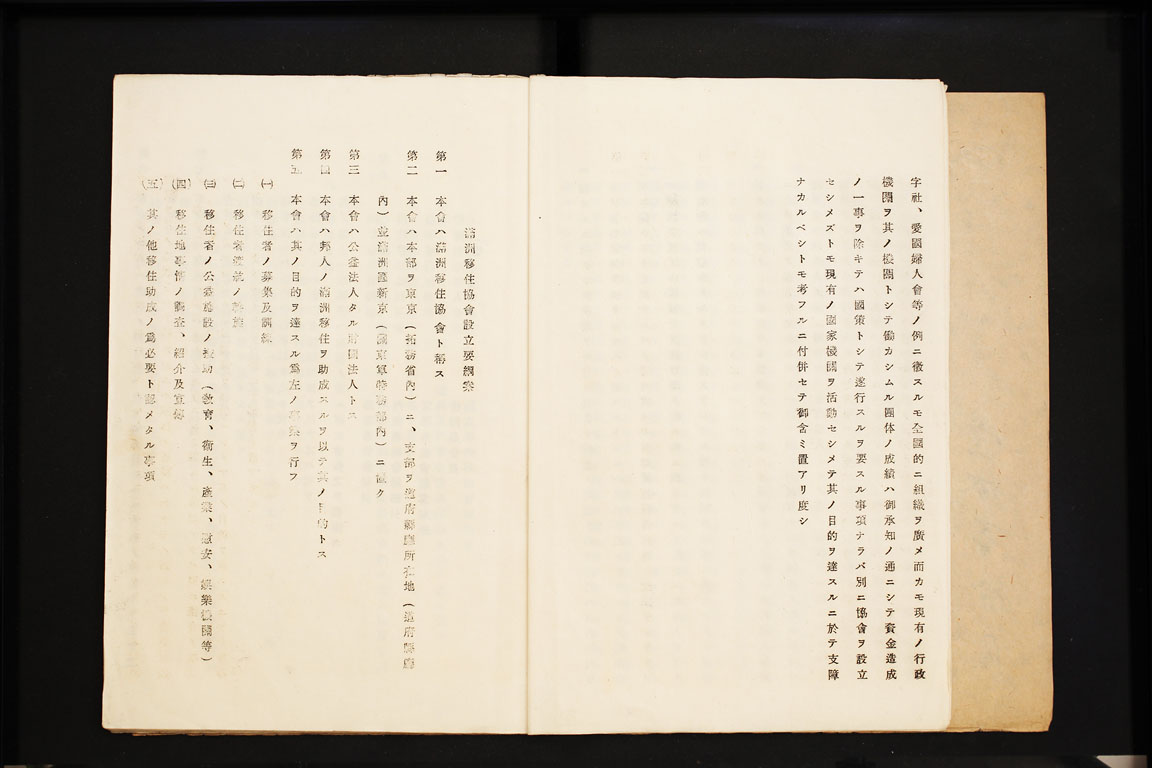 字社、愛國婦人會等ノ例ニ徴スルモ全國的ニ組織ヲ廣メ而カモ現有ノ行政
機關ヲ其ノ機關トシテ働カシムル團体ノ成績ハ御承知ノ通ニシテ資金造成
ノ一事ヲ除キテハ國策トシテ遂行スルヲ要スル事項ナラバ別ニ協會ヲ設立
セシメズトモ現有ノ國家機關ヲ活動セシメテ其ノ目的ヲ達スルニ於テ支障
ナカルベシトモ考フルニ付併セテ御含ミ置アリ度シ
滿洲移住協會設立要綱案
第一 本會ハ滿洲移住協會ト稱ス
第二 本會ハ本部ヲ東京(拓務省內)ニ、支部ヲ道府縣廳所在地(道府縣廳
內)並滿洲國新京(關東軍特務部內)ニ置ク
第三 本會ハ公益法人タル財團法人トス
第四 本會ハ邦人ノ滿洲移住ヲ助成スルヲ以テ其ノ目的トス
第五 本會ハ其ノ目的ヲ達スル爲左ノ事業ヲ行フ
(一) 移住者ノ募集及訓練
(二) 移住者ノ斡旋
(三) 移住者ノ公益施設ノ補助(敎育、衞生、產業、慰安、娛樂機關等)
(四) 移住地事情ノ調査、紹介及宣傳
(五) 其ノ他移住助成ノ爲必要ト認メタル事項